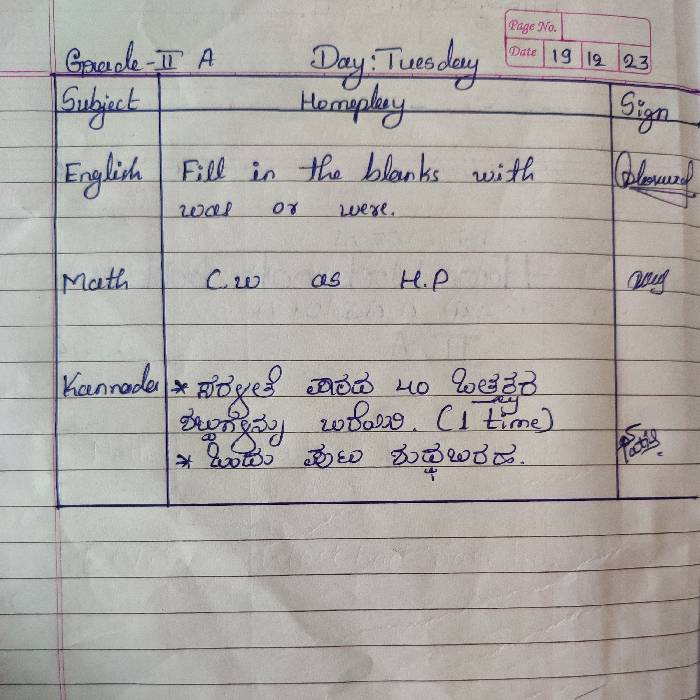 Page No.
Date 19 12 23
Grade-II A Day: Tuesday
Subject Homeplay Sign
English Fill in the blanks with
was or were.
Math C.w as H.P
Kannada * ಸರಳತೆ ಪಾಠದ ೫೦ ಒತ್ತಕ್ಷರ
ಶಬ್ಧಗಳನ್ನು ಬರೆಯಿರಿ. (1 time)
* ಒಂದು ಪುಟ ಶುದ್ಧಬರಹ.